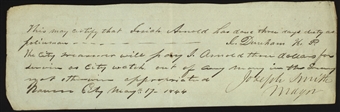 This may certify that Josiah Arnold has done three days duty as
policeman J. Dunham H. P.
The City treasurer will pay J. Arnold three dollars for
service as City watch out of any money in the
not otherwise appropriated
Nauvoo City May 17. 1844 Joseph Smith
Mayor